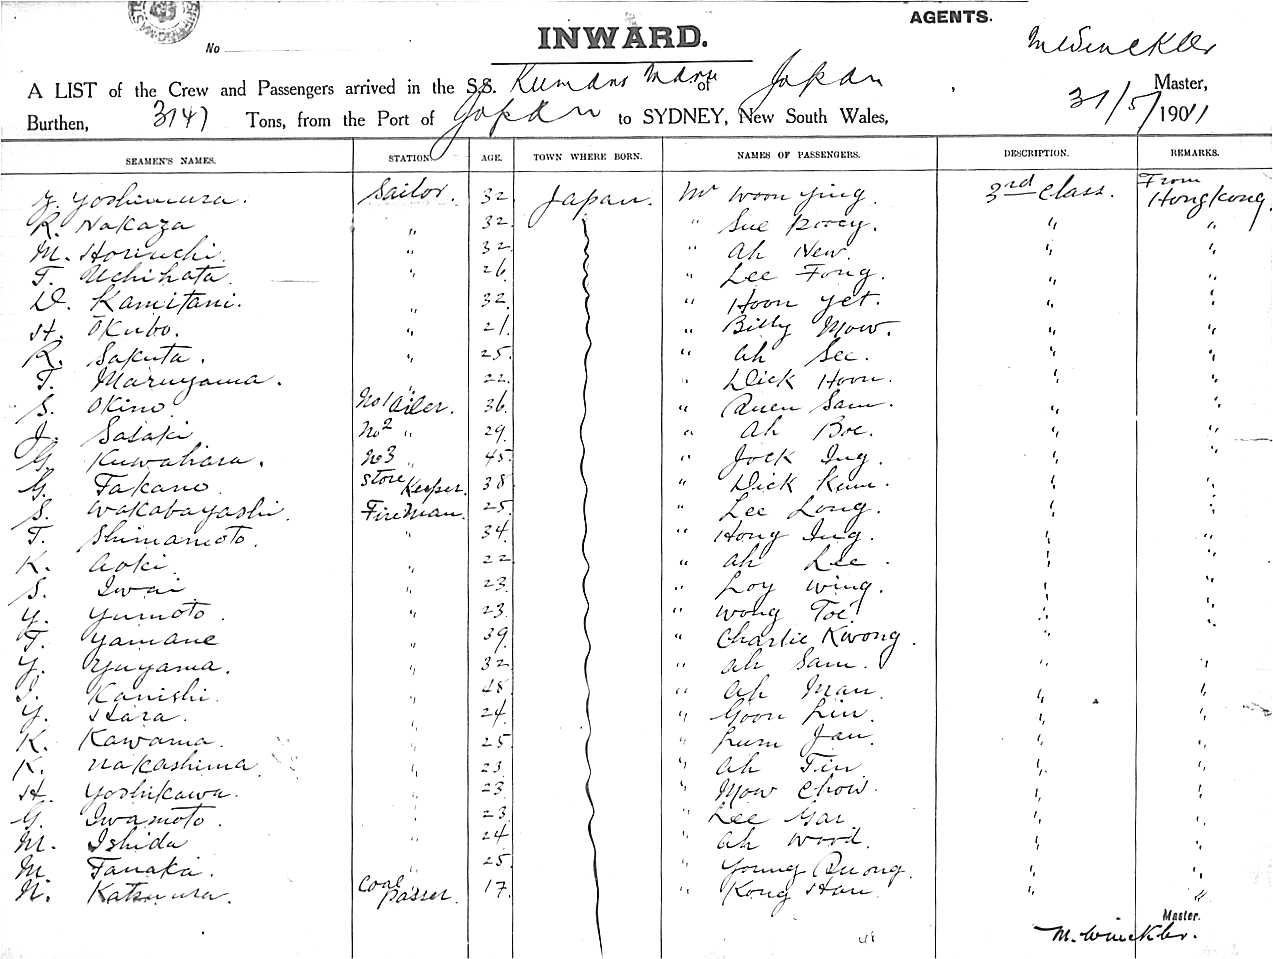 AGENTS.
No
INWARD.
M Winckler
A LIST of the Crew and Passengers arrived in the S.S. Kumano Maru of Japan Master,
Burthen, 3147 Tons, from the Port of Japan to SYDNEY, New South Wales, 31/5/1901
SEAMEN'S NAMES. STATION. AGE. TOWN WHERE BORN. NAMES OF PASSENGERS. DESCRIPTION. REMARKS.
Y. Yoshimura. Sailor. 32 Japan. Mr Woon Ying. 3rd Class. From Hongkong.
R. Nakaza " 32 " Sue " "
M. Horiuchi. " 32 " Ah New. " "
T. Uchihata. " 26 " Lee Fong. " "
D. Kamitani. " 32 " Hoon Yet. " "
H. Okubo. " 21 " Billy Mow. " "
R. Sakuta. " 25 " Ah See. " "
T. Maruyama. " 22 " Dick Hoon. " "
S. Okino No 1 Oiler. 36 " Quen Sam. " "
J. Sasaki No 2 " 29 " Ah Boe. " "
G. Kuwahara. No 3 " 45 " Jock Ing. " "
G. Takano. Store Keeper. 38 " Dick Kam. " "
S. Wakabayashi. Fireman. 25 " Lee Long. " "
T. Shimamoto. " 34 " Hong Ing. " "
K. Aoki. " 22 " Ah Lee. " "
S. Iwai " 23 " Loy Wing. " "
Y. Yumoto. " 23 " Wong Toe. " "
T. Yamane " 39 " Charlie Kwong. " "
Y. Yuyama. " 32 " Ah Sam. " "
I. Kanishi. " " Ah Man. " "
Y. Hara. " 24 " Goon Lin. " "
K. Kawama. " 25 " Lum Jan. " "
K. Nakashima " 23 " Ah Tin " "
H. Yoshikawa. " 23 " Mow Chow. " "
G. Iwamoto. " 23 " Lee Gar " "
M. Ishida " 24 " Ah Wood. " "
M. Tanaka. " 25 " Young Quong. " "
N. Katsumura. Coal Passer. 17 " Kong Han. " "
Master.
M. Winckler.